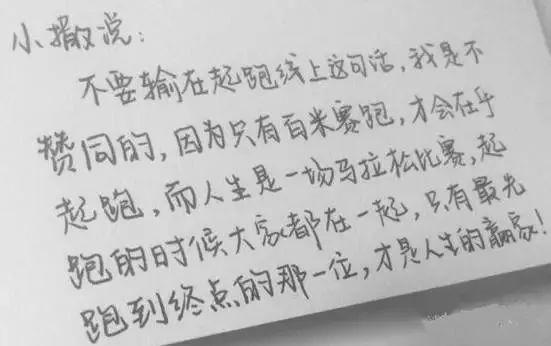 小撒说：
不要输在起跑线上这句话，我是不
赞同的，因为只有百米赛跑，才会在乎
起跑，而人生是一场马拉松比赛，起
跑的时候大家都在一起，只有最先
跑到终点的那一位，才是人生的赢家！